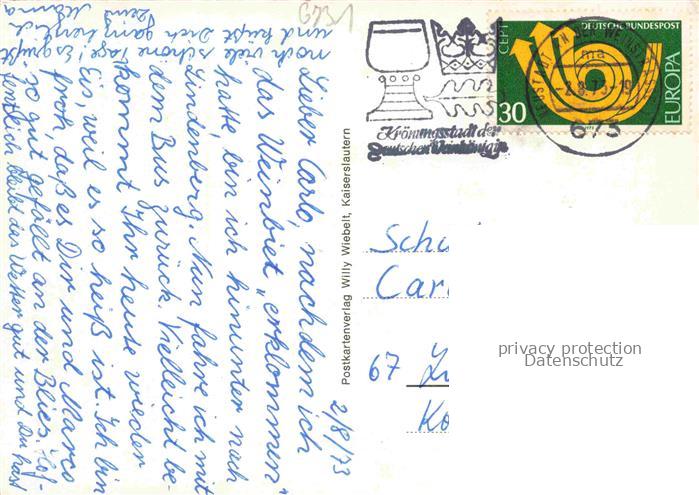 Lieber Carlo, nachdem ich
das Weinbiet „erklommen"
hatte, bin ich hinunter nach
Lindenberg. Nun fahre ich mit
dem Bus zurück. Vielleicht be-
kommt Ihr heute wieder
Eis, weil es so heiß ist. Ich bin
froh, daß es Dir und Marco
so gut gefällt an der Blies. Hof-
fentlich bleibt das Wetter gut und Du hast
noch viele schöne Tage! Es grüßt
und küßt Dich ganz herzlich
Deine
Mama
2/8/73
Postkartenverlag Willy Wiebelt, Kaiserslautern
6731
Krönungsstadt der
Deutschen Weinkönigin
CEPT
DEUTSCHE BUNDESPOST
EUROPA
30
ma
-2.8.73-19
673
Schu
Carl
67
Ko
privacy protection
Datenschutz